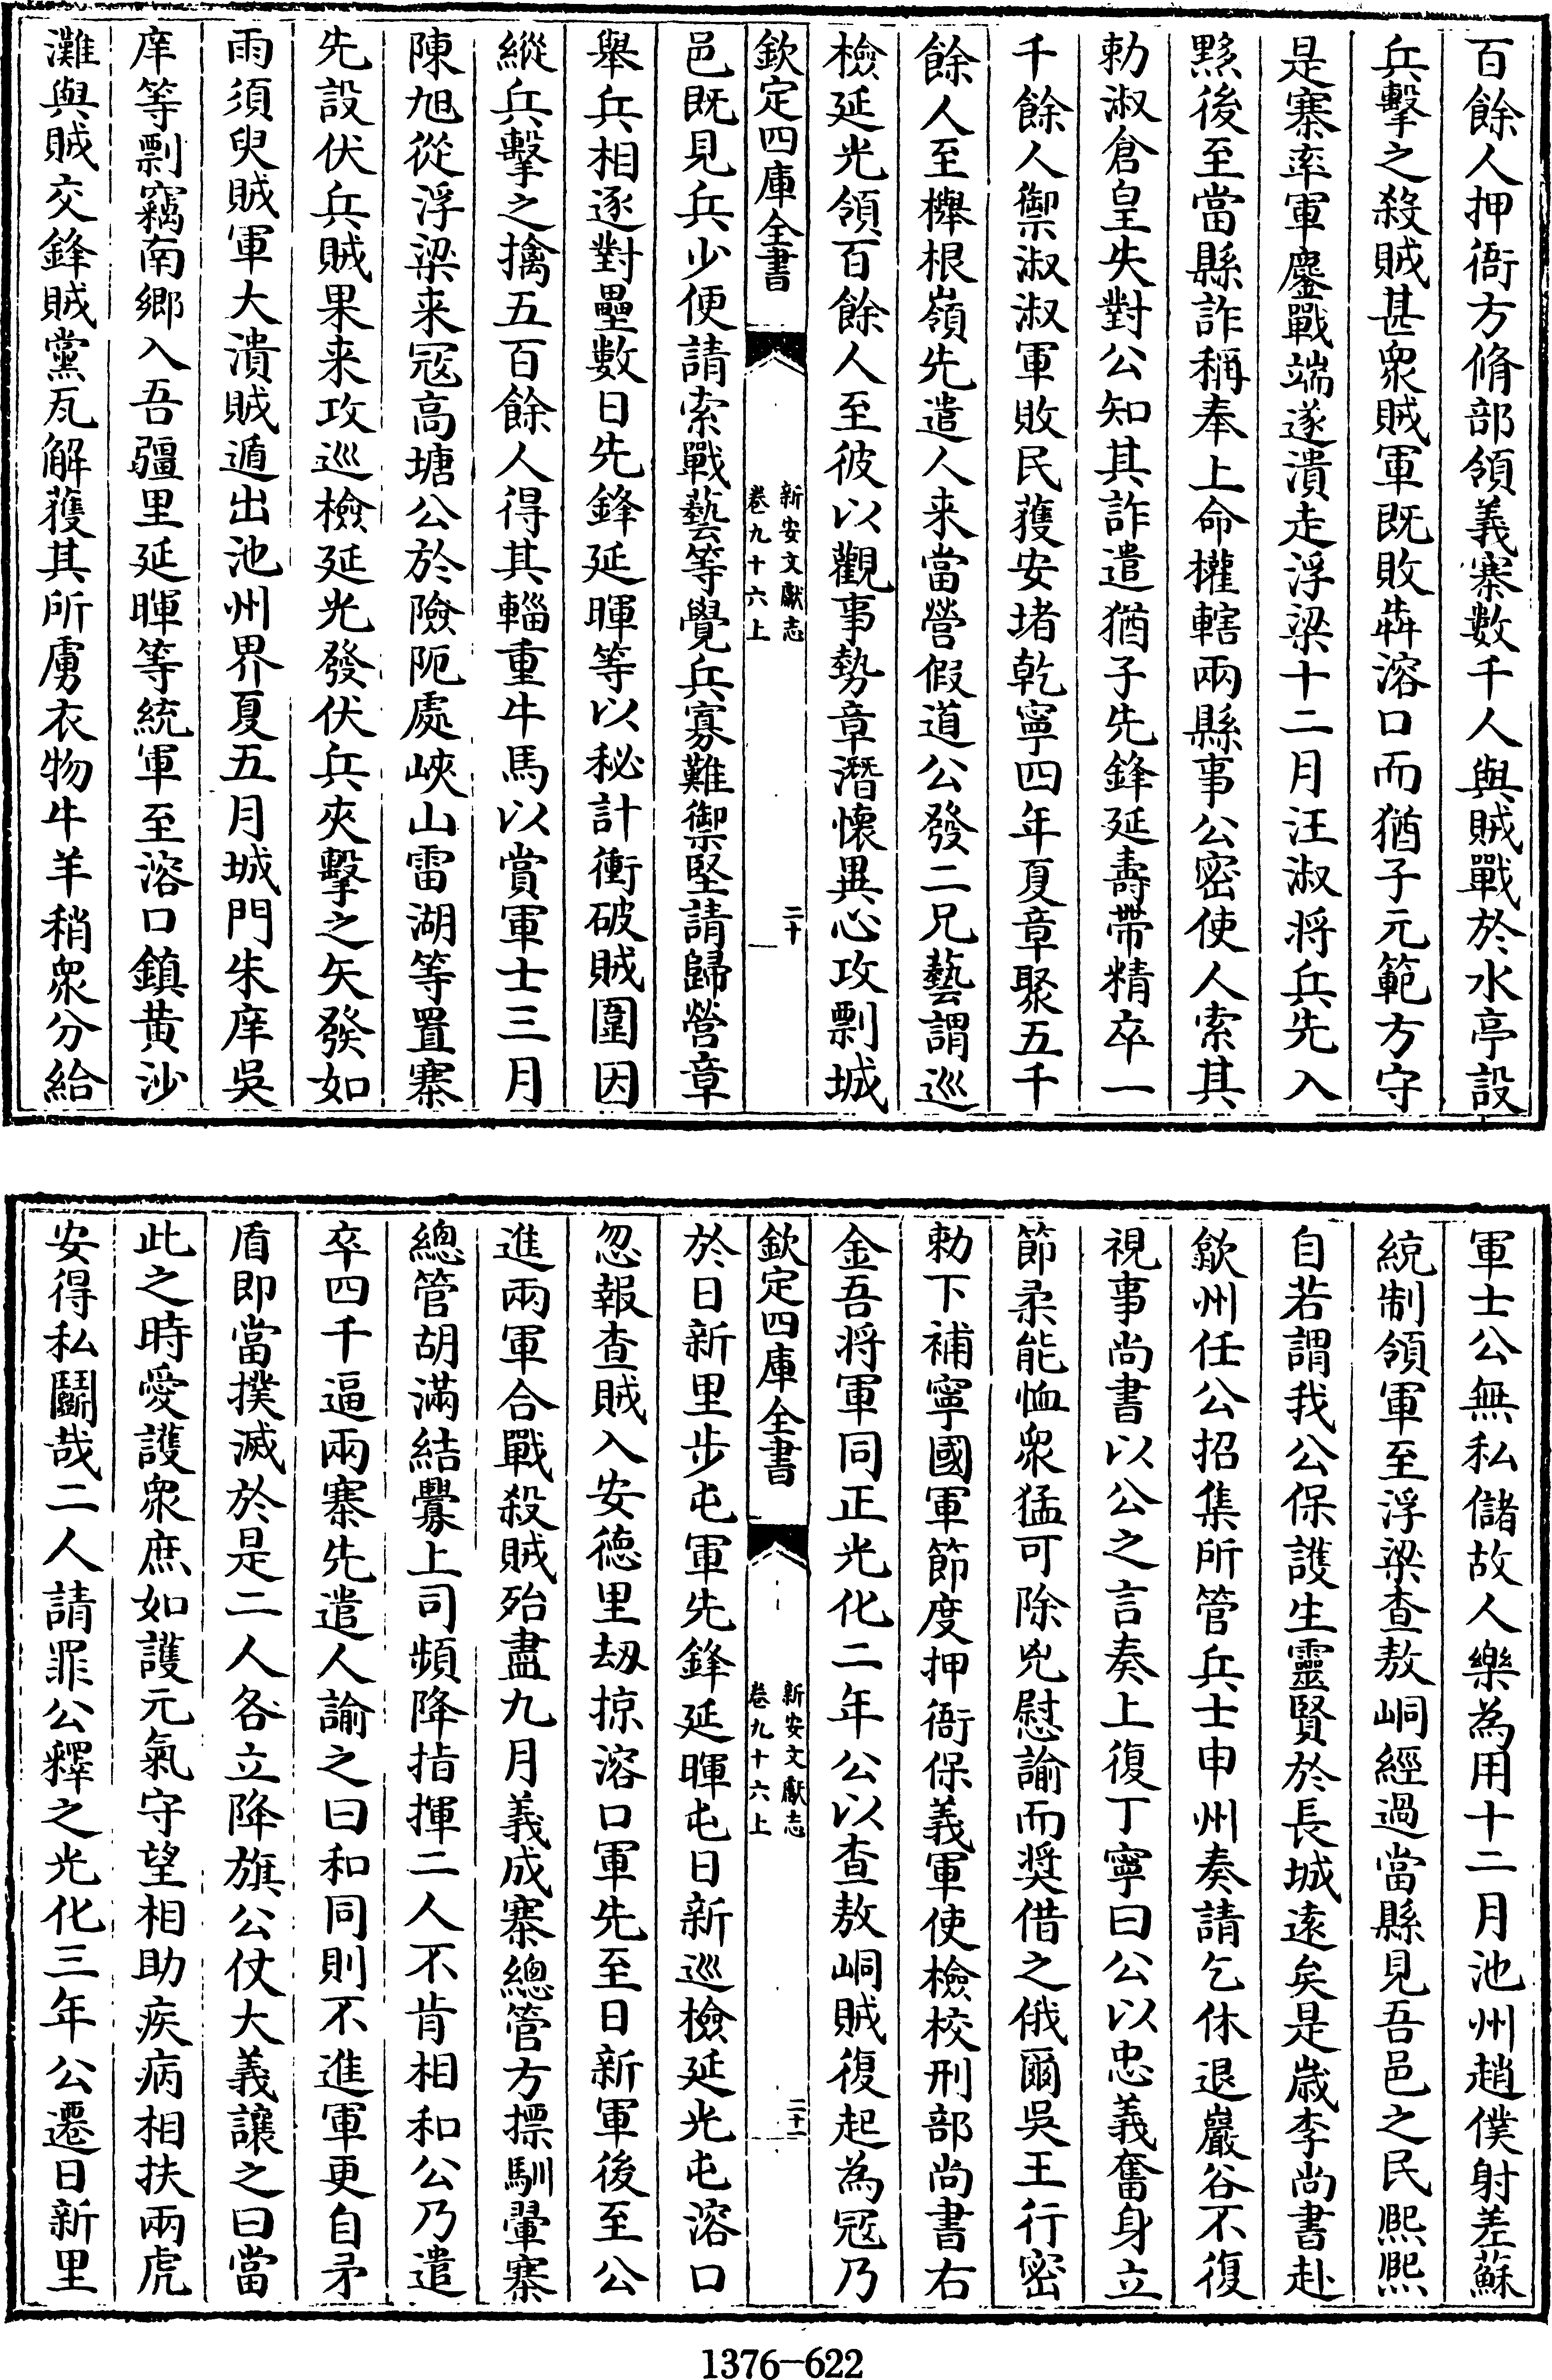 百餘人押衙方脩部領義寨數千人與賊戰於水亭設
兵擊之殺賊甚衆賊軍既敗犇溶口而猶子元範方守
是寨率軍鏖戰端遂潰走浮梁十二月汪淑将兵先入
黟後至當縣詐稱奉上命權轄兩縣事公密使人索其
勅淑倉皇失對公知其詐遣猶子先鋒延壽帶精卒一
千餘人禦淑淑軍敗民獲安堵乾寧四年夏章聚五千
餘人至櫸根嶺先遣人来當營假道公發二兄藝謂巡
檢延光領百餘人至彼以觀事勢章潛懷異心攻剽城
欽定四庫全書
新安文獻志
卷九十六上
二十
邑既見兵少便請索戰藝等覺兵寡難禦堅請歸營章
舉兵相逐對壘數日先鋒延暉等以秘計衝破賊圍因
縱兵擊之擒五百餘人得其輜重牛馬以賞軍士三月
陳旭從浮梁来冦高塘公於險阨處峽山雷湖等置寨
先設伏兵賊果来攻巡檢延光發伏兵夾擊之矢發如
雨須臾賊軍大潰賊遁出池州界夏五月城門朱庠吳
庠等剽竊南鄉入吾疆里延暉等統軍至溶口鎮黄沙
灘與賊交鋒賊黨瓦解獲其所虜衣物牛羊稍衆分給
軍士公無私儲故人樂為用十二月池州趙僕射差蘇
統制領軍至浮梁查敖峒經過當縣見吾邑之民熙熙
自若謂我公保護生靈賢於長城遠矣是歲李尚書赴
歙州任公招集所管兵士申州奏請乞休退巖谷不復
視事尚書以公之言奏上復丁寧曰公以忠義奮身立
節柔能恤衆猛可除兇慰諭而奬借之俄爾吳王行密
勅下補寧國軍節度押衙保義軍使檢校刑部尚書右
金吾将軍同正光化二年公以查敖峒賊復起為冦乃
欽定四庫全書
新安文獻志
卷九十六上
二十一
於日新里步屯軍先鋒延暉屯日新巡檢延光屯溶口
忽報查賊入安德里刼掠溶口軍先至日新軍後至公
進兩軍合戰殺賊殆盡九月義成寨總管方摽馴翬寨
總管胡滿結釁上司頻降指揮二人不肯相和公乃遣
卒四千逼兩寨先遣人諭之曰和同則不進軍更自矛
盾即當撲滅於是二人各立降旗公仗大義讓之曰當
此之時愛護衆庶如護元氣守望相助疾病相扶兩虎
安得私鬭哉二人請罪公釋之光化三年公遷日新里
1376-622